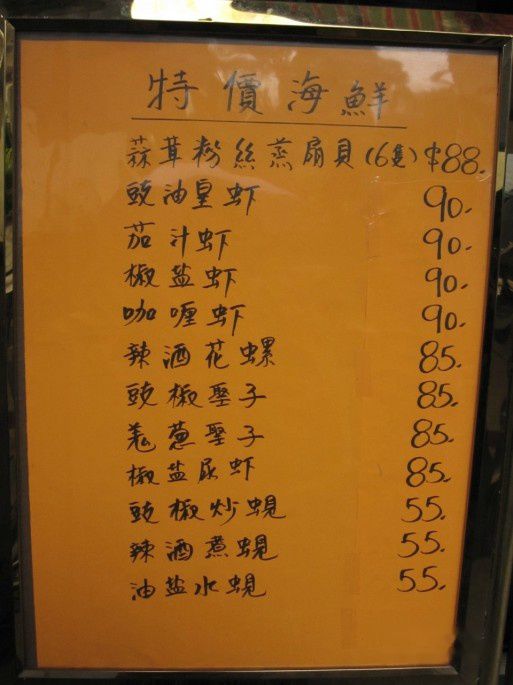 特價海鮮
蒜茸粉絲蒸扇貝(6隻) $88.
豉油皇虾 90.
茄汁虾 90.
椒盐虾 90.
咖喱虾 90.
辣酒花螺 85.
豉椒聖子 85.
羗蔥聖子 85.
椒盐尿虾 85.
豉椒炒蜆 55.
辣酒煮蜆 55.
油盐水蜆 55.